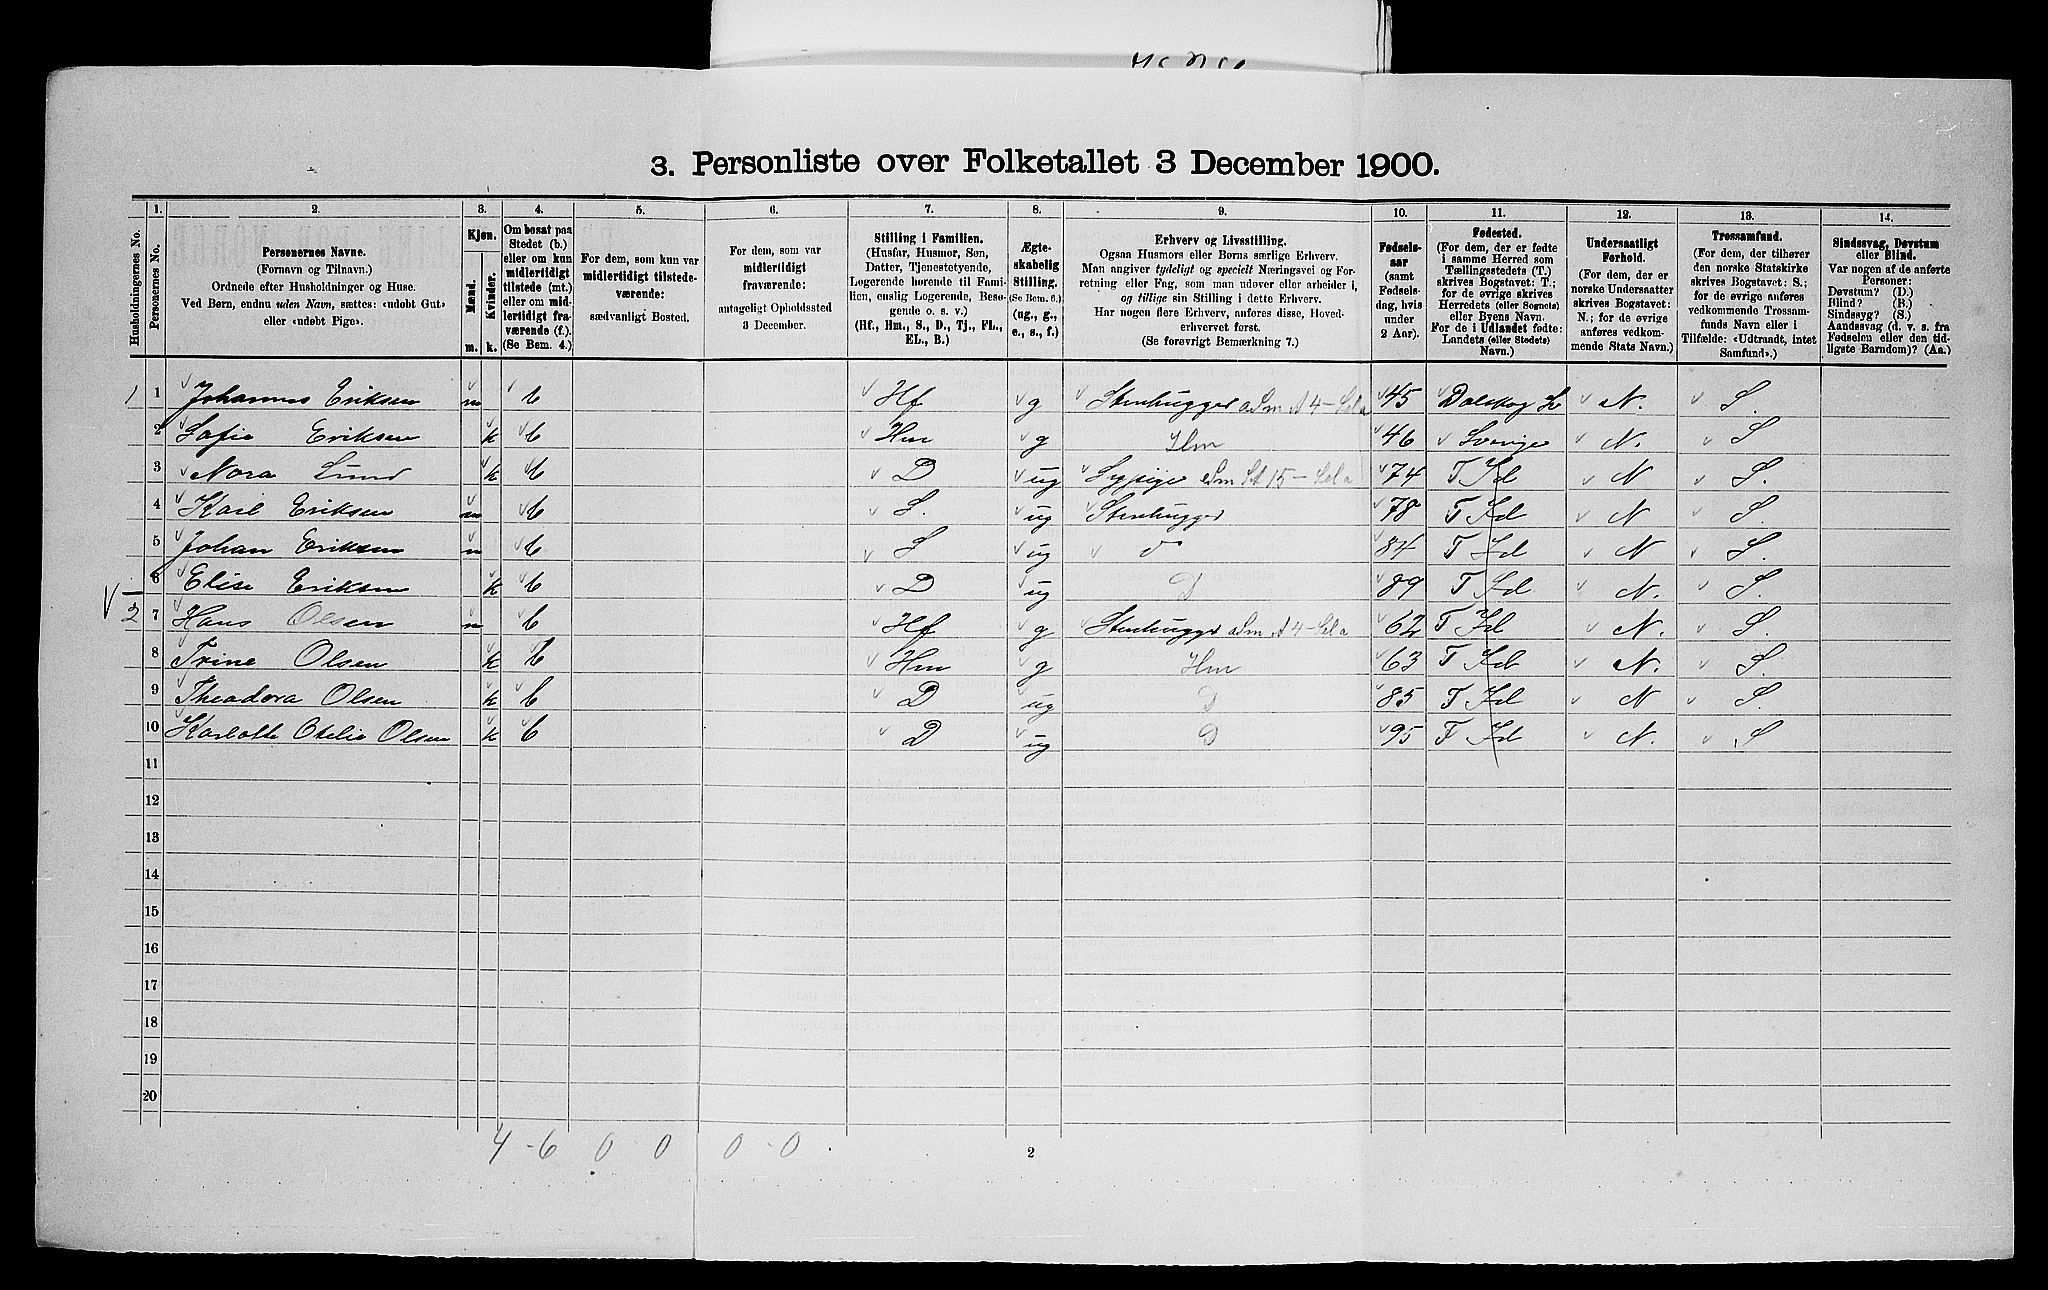 3. Personliste over Folketallet 3 December 1900.
Husholdningernes No.
1. Personernes No.
2. Personernes Navne.
(Fornavn og Tilnavn.)
Ordnede efter Husholdninger og Huse.
Ved Børn, endnu uden Navn, sættes: «udøbt Gut»
eller «udøbt Pige».
3. Kjøn.
Mænd. Kvinder.
m. k.
4.
Om bosat paa
Stedet (b.)
eller om kun
midlertidigt
tilstede (mt.)
eller om mid-
lertidigt fra-
værende (f.)
(Se Bem. 4.)
5.
For dem, som kun var
midlertidigt tilstede-
værende:
sædvanligt Bosted.
6.
For dem, som var
midlertidigt
fraværende:
antageligt Opholdssted
3 December.
7.
Stilling i Familien.
(Husfar, Husmor, Søn,
Datter, Tjenestetyende,
Logerende hørende til Fami-
lien, enslig Logerende, Besø-
gende o. s. v.)
(Hf., Hm., S., D., Tj., FL.,
EL., B.)
8.
Ægte-
skabelig
Stilling.
(Se Bem. 6.)
(ug., g.,
e., s., f.)
9.
Erhverv og Livsstilling.
Ogsaa Husmors eller Børns særlige Erhverv.
Man angiver tydeligt og specielt Næringsvei og For-
retning eller Fag, som man udøver eller arbeider i,
og tillige sin Stilling i dette Erhverv.
Har nogen flere Erhverv, anføres disse, Hoved-
erhvervet først.
(Se forøvrigt Bemærkning 7.)
10.
Fødsels-
aar
(samt
Fødsels-
dag, hvis
under
2 Aar).
11.
Fødested.
(For dem, der er fødte
i samme Herred som
Tællingsstedets (T.)
skrives Bogstavet: T.;
for de øvrige skrives
Herredets (eller Sognets)
eller Byens Navn.
For de i Udlandet fødte:
Landets (eller Stedets)
Navn.)
12.
Undersaatligt
Forhold.
(For dem, der er
norske Undersaatter
skrives Bogstavet:
N.; for de øvrige
anføres vedkom-
mende Stats Navn.)
13.
Trossamfund.
(For dem, der tilhører
den norske Statskirke
skrives Bogstavet: S.;
for de øvrige anføres
vedkommende Trossam-
funds Navn eller i
Tilfælde: «Udtraadt, intet
Samfund».)
14.
Sindssvag, Døvstum
eller Blind.
Var nogen af de anførte
Personer:
Døvstum? (D.)
Blind? (B.)
Sindssyg? (S.)
Aandssvag (d. v. s. fra
Fødselen eller den tid-
ligste Barndom)? (Aa.)
1 1 Johannes Eriksen m b Hf g Stenhugger 45 Dalskog N. S.
2 Sofie Eriksen k b Hm g Hm 46 Sverige N. S
3 Nora Lund k b D ug Sypige 74 T Id N S.
4 Karl Eriksen m b S. ug Stenhugger 78 T Id N S
5 Johan Eriksen m b S ug d 84 T Id N S.
6 Elise Eriksen k b D ug D 89 T Id N. S.
2 7 Hans Olsen m b Hf g Stenhugger 62 T Id N. S.
8 Trine Olsen k b Hm g Hm 63 T Id N. S
9 Theodora Olsen k b D ug D 85 T Id N S.
10 Karlotte Otelie Olsen k b D ug D 95 T Id N. S
11
12
13
14
15
16
17
18
19
20
4 - 6 0 0 0 - 0
2